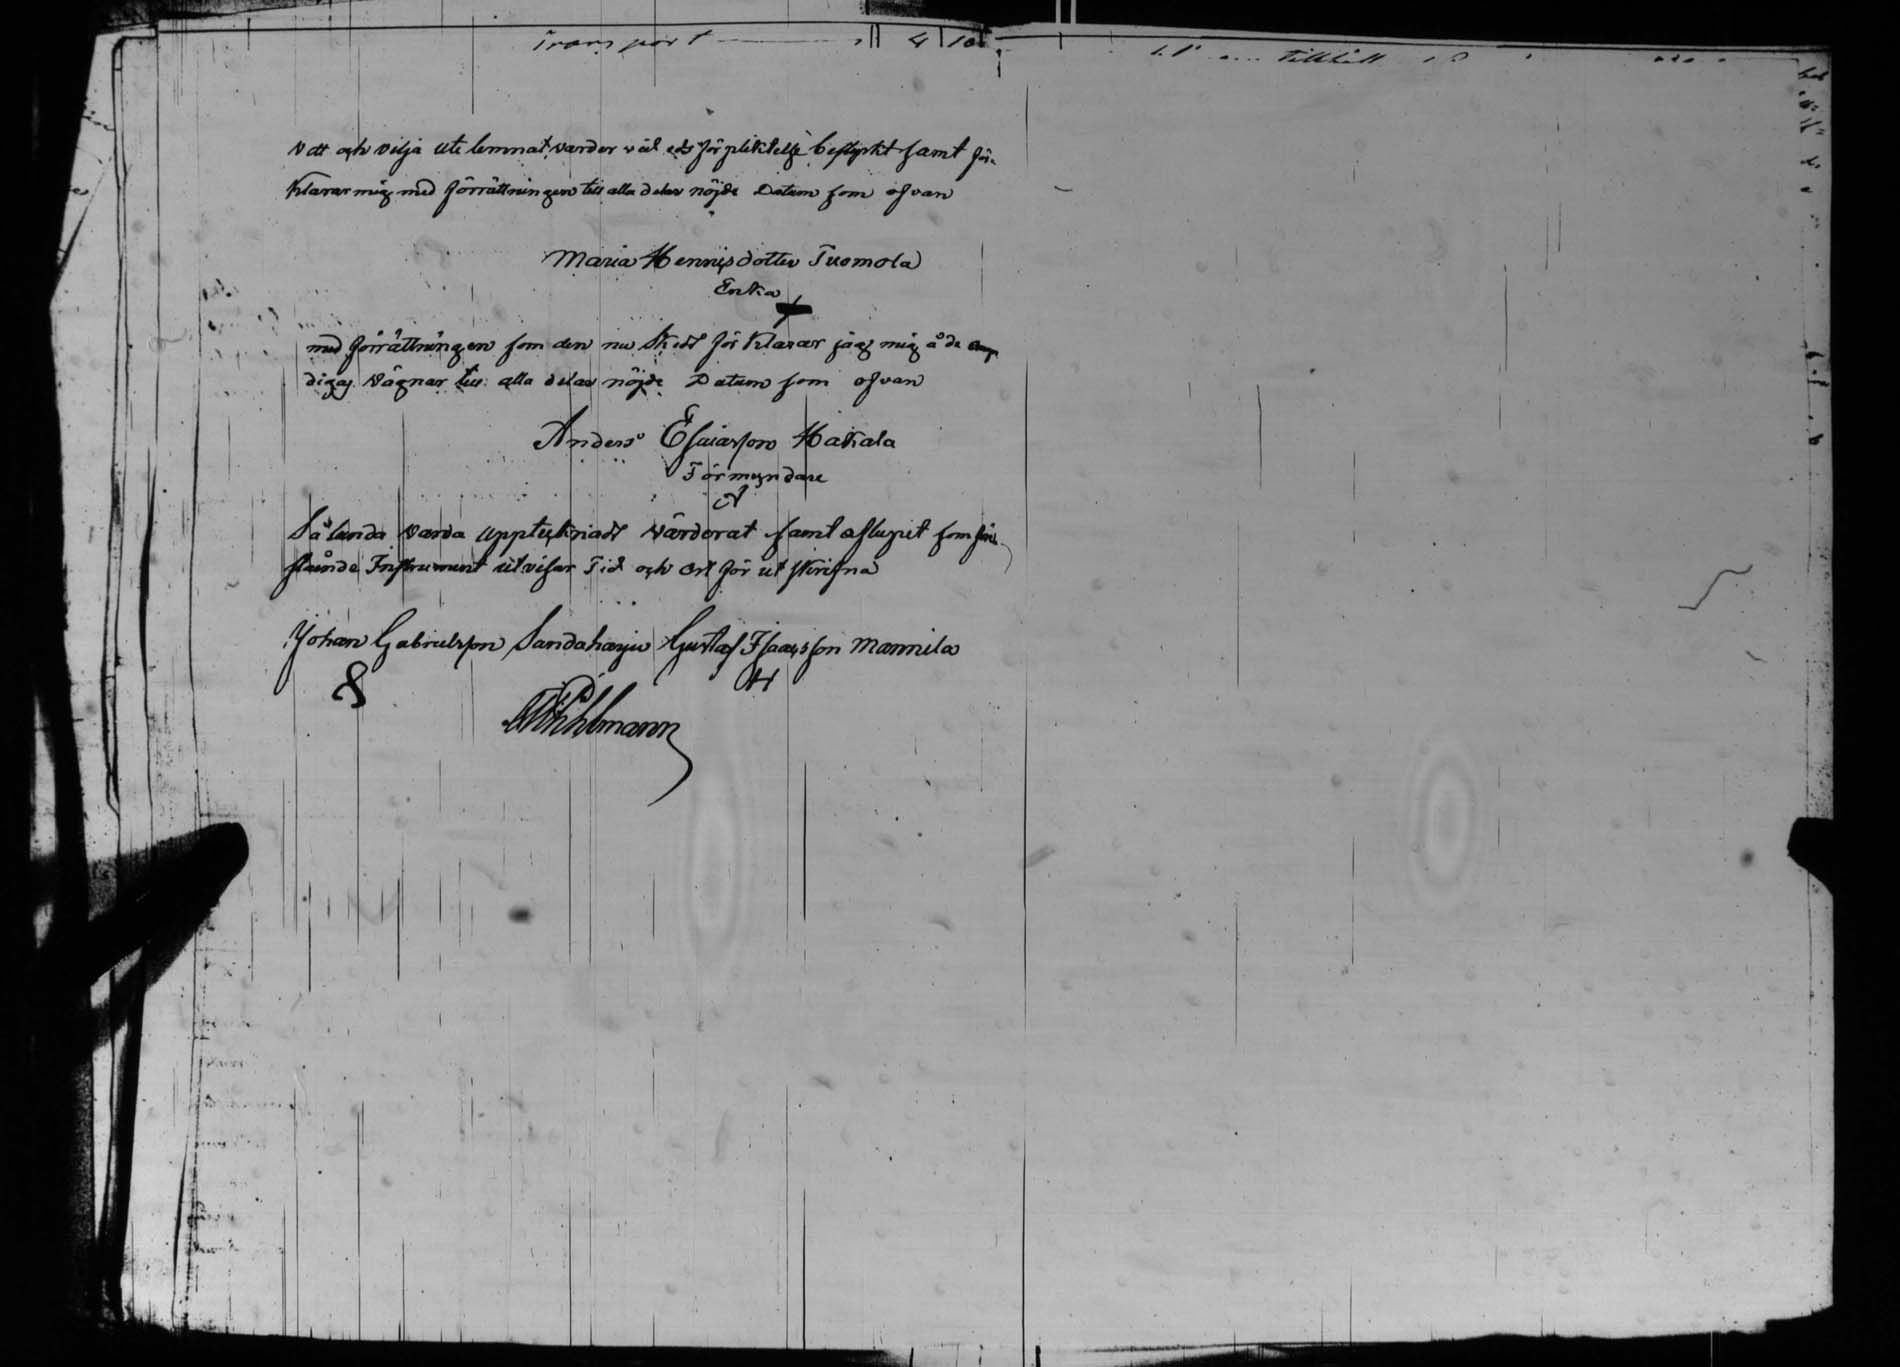 Transport 4 10
vett och vilja ute lemnat varder vid eds förpliktelse bestyrkt samt för-
klarar mig med förrättningen till alla delar nöjde Datum som ofvan
Maria Hennisdotter Tuomola
Enka
med förrättningen som den nu Skedt förklarar jag mig å de omyn
digas vägnar till alla delar nöjde Datum som ofvan
Anders Esaiasson Hakala
Förmyndare
Sålunda varda upptecknadt värderat samt aflupit som före-
stående Instrument utvisar Tid och ort för ut skrifna
Johan Gabrielsson Sandaharju Gustaf Isaacsson Mannila
Pihlmann